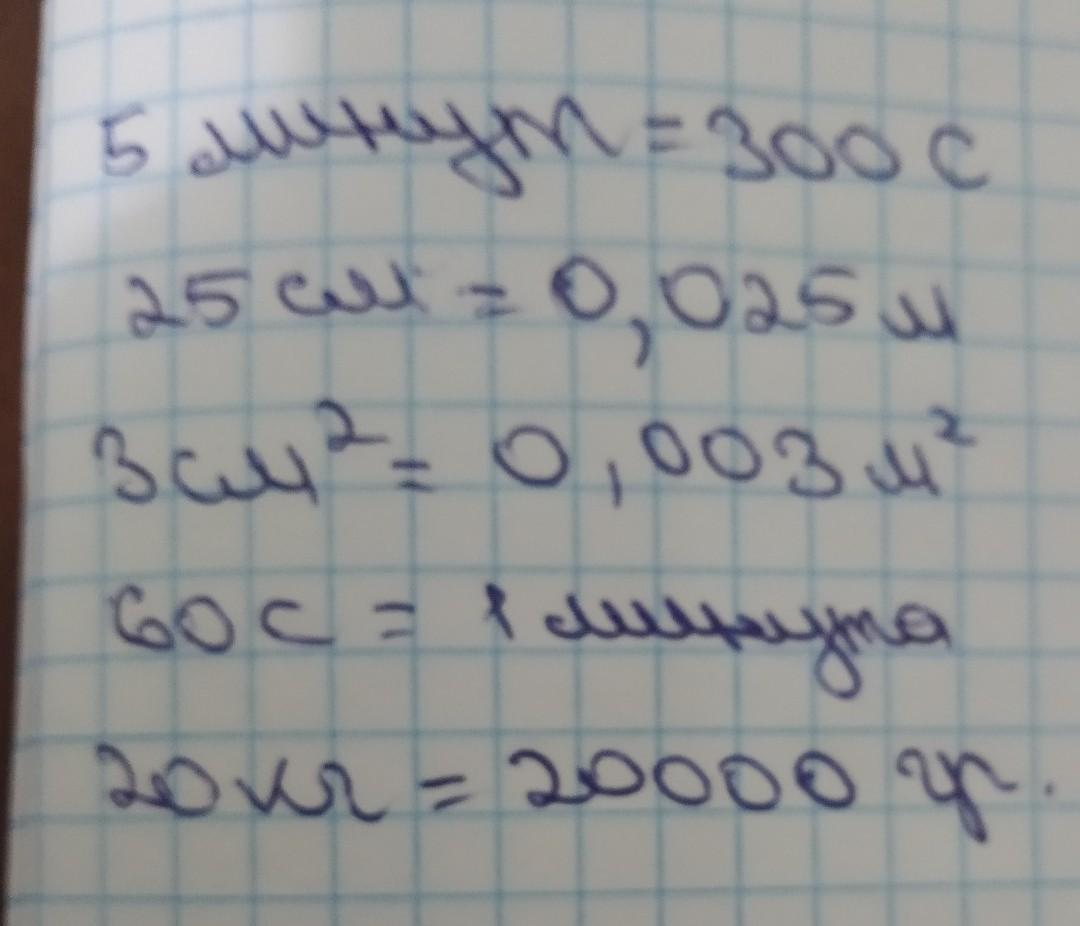 5 минут = 300 с
25 см = 0,025 м
3 см² = 0,003 м²
60 с = 1 минута
20 кг = 20000 гр.